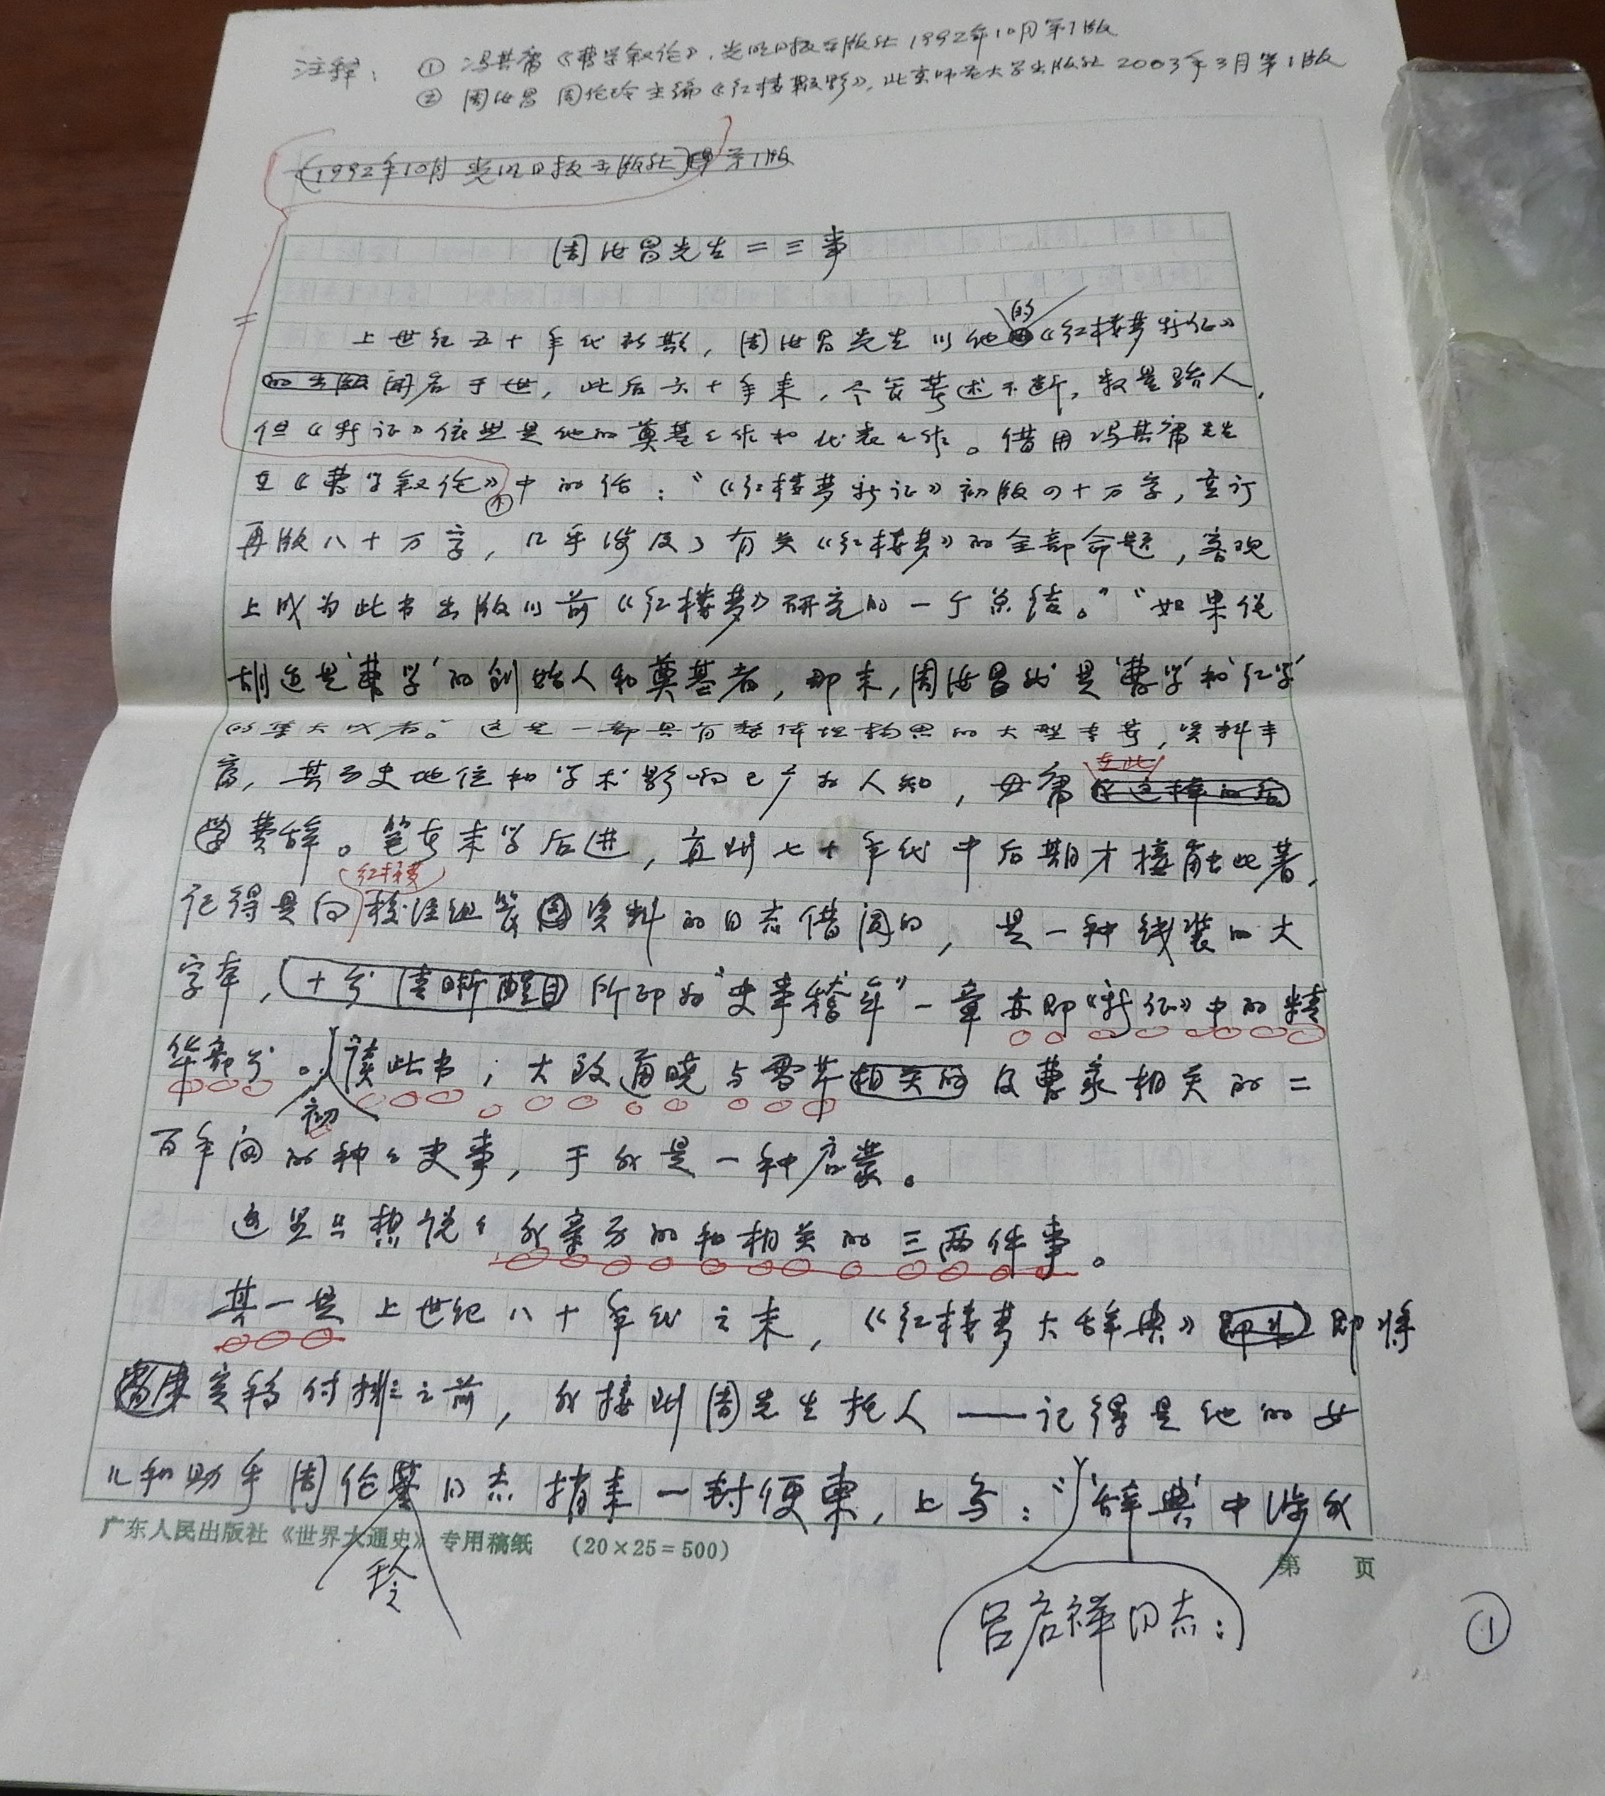 注释：① 冯其庸《曹学叙论》，光明日报出版社 1992年10月第1版
② 周汝昌 周伦玲主编《红楼鞭影》，北京师范大学出版社 2003年3月第1版
(1992年10月 光明日报出版社) 第1版
周汝昌先生二三事
上世纪五十年代初期，周汝昌先生以他的《红楼梦新证》
的出版闻名于世，此后六十年来，个人著述不断，数量骇人，
但《新证》依然是他的奠基之作和代表之作。借用冯其庸先生
在《曹学叙论》①中的话：“《红楼梦新证》初版四十万字，重订
再版八十万字，几乎涉及了有关《红楼梦》的全部命题，客观
上成为此书出版以前《红楼梦》研究的一个总结。”“如果说
胡适是‘曹学’的创始人和奠基者，那末，周汝昌就是‘曹学’和‘红学’
的集大成者。”这是一部具有整体架构思的大型专著，资料丰
富，其历史地位和学术影响已广为人知，毋庸在此
费辞。笔者末学后进，直到七十年代中后期才接触此著，
记得是向红楼梦校注组管资料的同志借阅的，是一种线装的大
字本，十分清晰醒目 所印为“史事稽年”一章亦即《新证》中的精
华部分。初读此书，大致通晓与雪芹相关的及曹家相关的二
百年间的种种史事，于我是一种启蒙。
这里只想说说我亲历的和相关的三两件事。
其一是上世纪八十年代之末，《红楼梦大辞典》即将
定稿付排之前，我接到周先生托人——记得是他的女
儿和助手周伦玲同志捎来一封便柬，上写：“‘辞典’中涉我
广东人民出版社《世界大通史》专用稿纸 (20×25=500)
第 页
吕启祥同志：
①